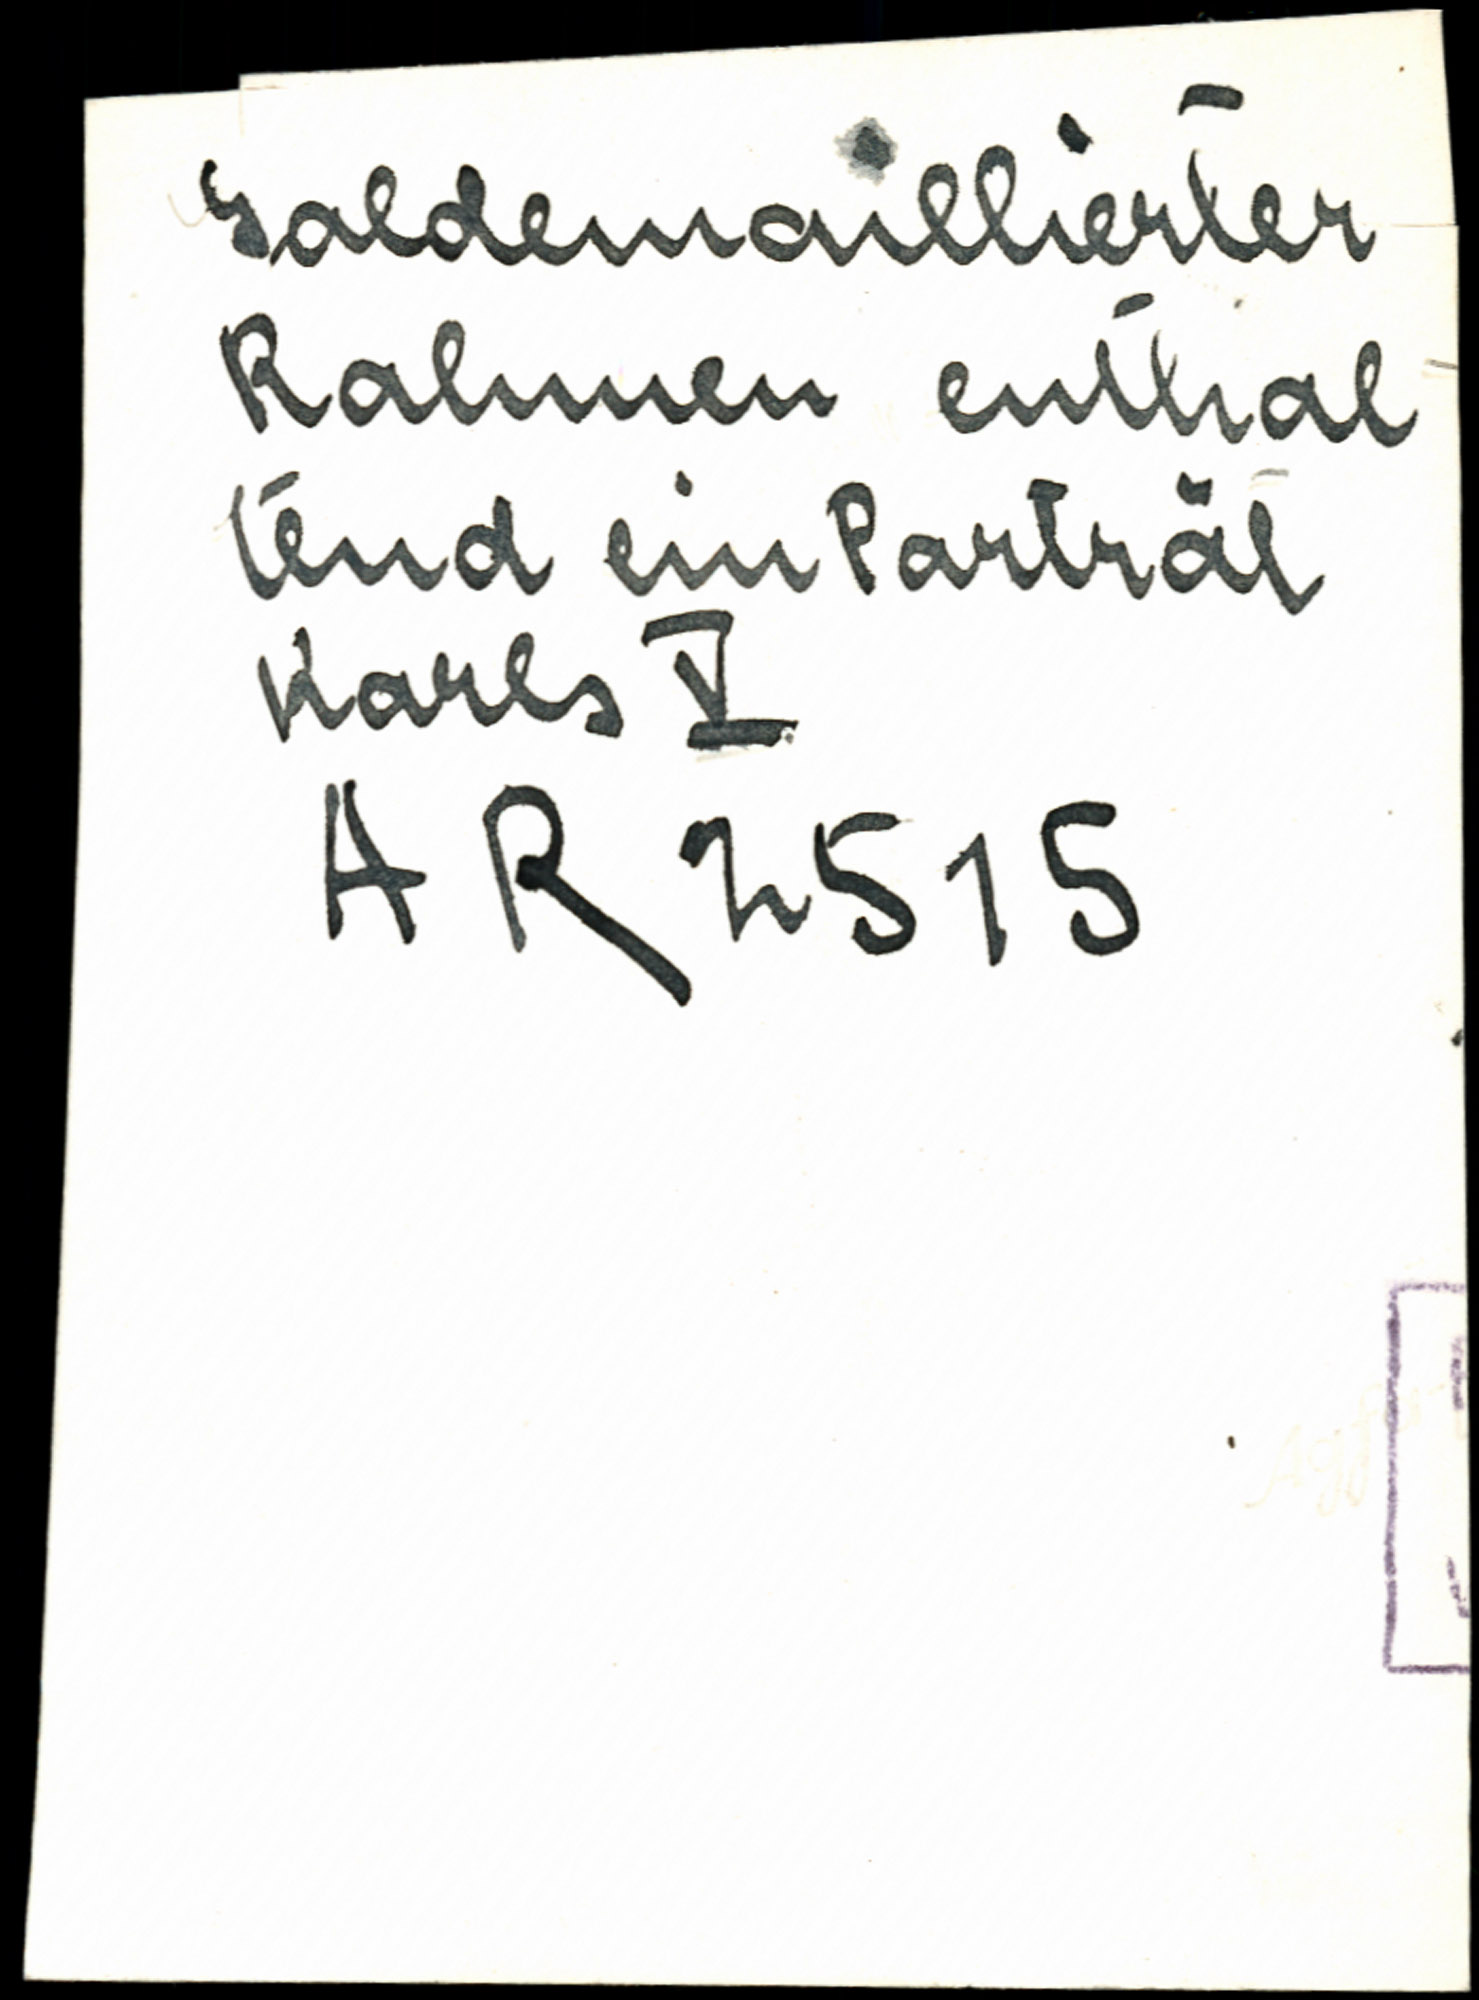 Goldemaillierter
Rahmen enthal
tend ein Porträt
Karls V.
AR 2515